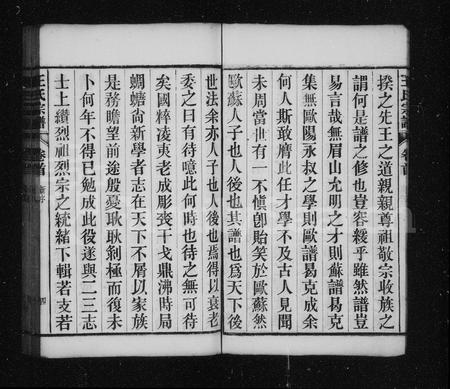 揆之先王之道親親尊祖敬宗收族之
謂何是譜之修也豈容緩乎雖然譜豈
易言哉無眉山允明之才則蘇譜曷克
集無歐陽永叔之學則歐譜曷克成余
何人斯敢膺此任才學不及古人見聞
未周當世有一不愼卽貽笑於歐蘇然
歐蘇人子也人後也其譜也爲天下後
世法余亦人子也人後也焉得以衰老
委之曰有待噫此何時也待之無可待
矣國粹凌夷老成彫喪干戈鼎沸時局
蜩螗尙新學者志在天下不屑以家族
是務瞻望前途殷憂耿耿剝極而復未
卜何年不得已勉成此役遂與二三志
士上纘烈祖烈宗之統緒下輯若支若
王氏宗譜
卷首
四